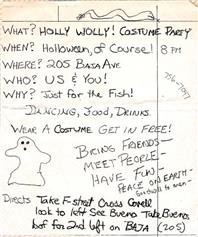 WHAT? HOLLY WOLLY! COSTUME PARTY
WHEN? Halloween, of Course! 8 PM
WHERE? 205 BAJA AVE
WHO? US & YOU!
WHY? Just for the Fish!
DANCING, FOOD, DRINKS
WEAR A COSTUME GET IN FREE!
BRING FRIENDS—
MEET PEOPLE—
HAVE FUN—
PEACE ON EARTH—
Goodwill to men—
Directs Take F-street Cross Covell
look to left See Bueno Take Bueno
to 2nd left on BAJA (205)